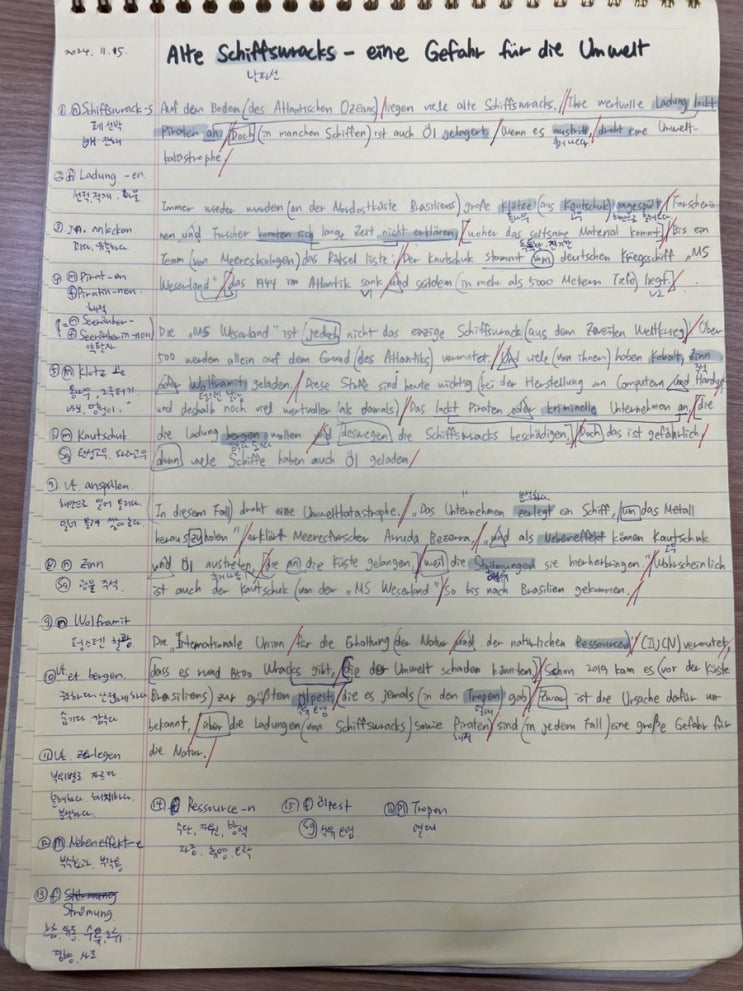 2024. 11. 05.
Alte Schiffswracks – eine Gefahr für die Umwelt
난파선
① ⓝ Schiffswrack-s
폐선박
배 잔해
② ⓕ Ladung -en.
선적, 적재, 화물
③ Vt. anlocken
④ ⓜ Pirat-en
ⓕ Piratin-nen.
해적
(= ⓜ Seeräuber-
ⓕ Seeräuberin-nen)
⑤ ⓜ Klotz ⸚e
통나무, 그루터기
⑥ ⓜ Kautschuk
Sg 탄성고무, 파라고무
⑦ Vt. anspülen
해안으로 밀어 올리다.
⑧ ⓝ Zinn
Sg 광물 주석.
⑨ ⓝ Wolframit
텅스텐 철광
⑩ Vt. et. bergen.
숨기다 감추다
⑪ Vt. zerlegen
부위별로 자르다
분해하다 해체하다.
분석하다.
⑫ ⓜ Nebeneffekt-e
부수효과, 부작용
⑬ ⓕ
Strömung
Auf dem Boden (des Atlantischen Ozeans) liegen viele alte Schiffswracks. Ihre wertvolle Ladung lockt
Piraten an. Doch (in manchen Schiffen) ist auch Öl gelagert. Wenn es austritt, droht eine Umwelt-
katastrophe.
Immer wieder wurden (an der Nordostküste Brasiliens) große Klötze (aus Kautschuk) angespült. Forscherin-
nen und Forscher konnten sich lange Zeit nicht erklären, woher das seltsame Material kommt. Bis ein
Team (von Meeresbiologen) das Rätsel löste: Der Kautschuk stammt vom deutschen Kriegsschiff „MS
Weserland", das 1944 im Atlantik sank und seitdem (in mehr als 5000 Metern Tiefe) liegt.
v1 v2
Die „MS Weserland" ist jedoch nicht das einzige Schiffswrack (aus dem Zweiten Weltkrieg). Über
500 werden allein auf dem Grund (des Atlantiks) vermutet. Und viele (von ihnen) haben Kobalt, Zinn
oder Wolframit geladen. Diese Stoffe sind heute wichtig (bei der Herstellung von Computern und Handys)
und deshalb noch viel wertvoller (als damals). Das lockt Piraten oder kriminelle Unternehmen an, die
die Ladung bergen wollen und deswegen die Schiffswracks beschädigen. Doch das ist gefährlich,
denn viele Schiffe haben auch Öl geladen.
(In diesem Fall) droht eine Umweltkatastrophe. „Das Unternehmen zerlegt ein Schiff, um das Metall
herauszuholen", erklärt Meeresforscher Arruda Bezerra. „Und als Nebeneffekt können Kautschuk
und Öl austreten, die an die Küste gelangen, weil die Strömungen sie hierherbringen." Wahrscheinlich
ist auch der Kautschuk (von der „MS Weserland") so bis nach Brasilien gekommen.
Die „Internationale Union für die Erhaltung (der Natur und der natürlichen Ressourcen" (IUCN) vermutet,
dass es rund 8500 Wracks gibt, die der Umwelt schaden könnten. Schon 2019 kam es (vor der Küste
Brasiliens) zur größten Ölpest, die es jemals (in den Tropen) gab. Zwar ist die Ursache dafür un-
bekannt, aber die Ladungen (von Schiffswracks) sowie Piraten sind (in jedem Fall) eine große Gefahr für
die Natur.
⑭ ⓕ Ressource-n
수단, 자원, 방책
⑮ ⓕ Ölpest
Sg 석유 오염
⑯ Pl Tropen
열대